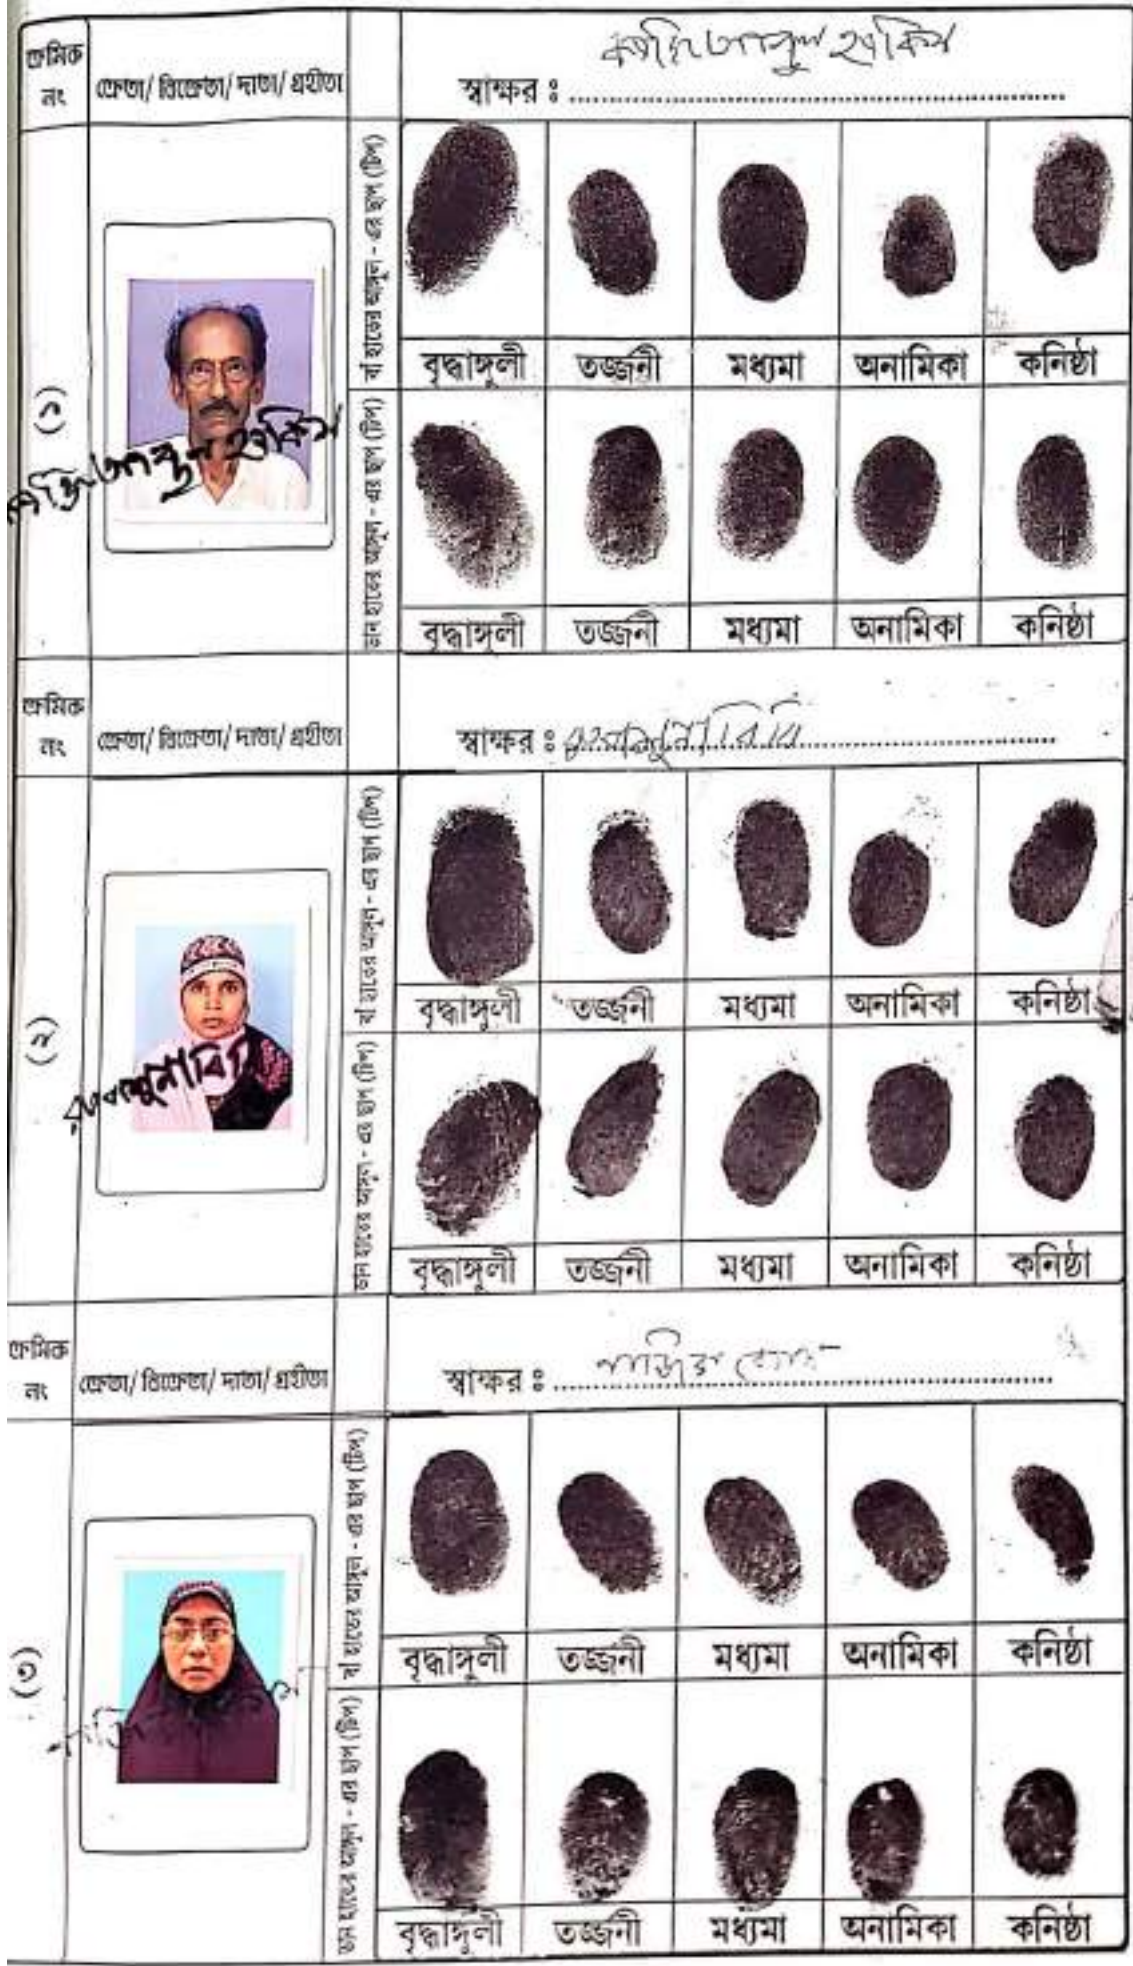 ক্রমিক নং
ক্রেতা/ বিক্রেতা/ দাতা/ গ্রহীতা
স্বাক্ষর ঃ
(১)
বাঁ হাতের আঙ্গুল - এর ছাপ (টিপ)
বৃদ্ধাঙ্গুলী তর্জ্জনী মধ্যমা অনামিকা কনিষ্ঠা
ডান হাতের আঙ্গুল - এর ছাপ (টিপ)
বৃদ্ধাঙ্গুলী তর্জ্জনী মধ্যমা অনামিকা কনিষ্ঠা
ক্রমিক নং
ক্রেতা/ বিক্রেতা/ দাতা/ গ্রহীতা
স্বাক্ষর ঃ বিবি
(২)
বাঁ হাতের আঙ্গুল - এর ছাপ (টিপ)
বৃদ্ধাঙ্গুলী তর্জ্জনী মধ্যমা অনামিকা কনিষ্ঠা
ডান হাতের আঙ্গুল - এর ছাপ (টিপ)
বৃদ্ধাঙ্গুলী তর্জ্জনী মধ্যমা অনামিকা কনিষ্ঠা
ক্রমিক নং
ক্রেতা/ বিক্রেতা/ দাতা/ গ্রহীতা
স্বাক্ষর ঃ
(৩)
বাঁ হাতের আঙ্গুল - এর ছাপ (টিপ)
বৃদ্ধাঙ্গুলী তর্জ্জনী মধ্যমা অনামিকা কনিষ্ঠা
ডান হাতের আঙ্গুল - এর ছাপ (টিপ)
বৃদ্ধাঙ্গুলী তর্জ্জনী মধ্যমা অনামিকা কনিষ্ঠা